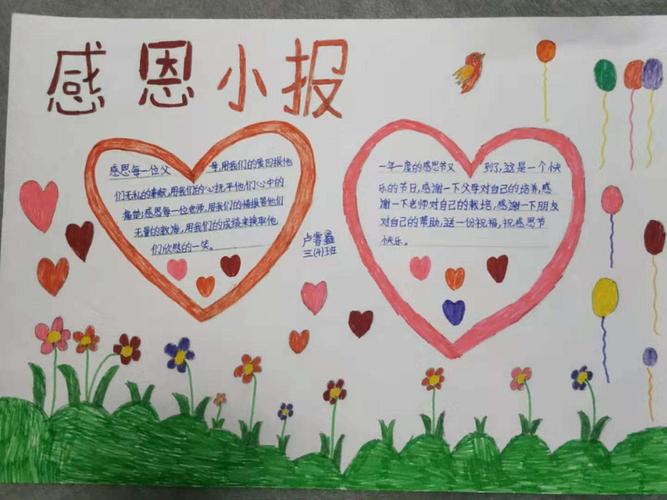 感恩小报
感恩每一位父 母,用我们的爱回报他
们无私的奉献,用我们的心抚平他们心中的
痛楚;感恩每一位老师,用我们的
无量的教海,用我们的成绩来换取他
们欣慰的一笑。
卢睿
三(4)班
一年一度的感恩节又 到了,这是一个快
乐的节日,感谢一下父母对自己的培养,感
谢一下老师对自己的栽培,感谢一下朋友
对自己的帮助,送一份祝福,祝感恩节
快乐。